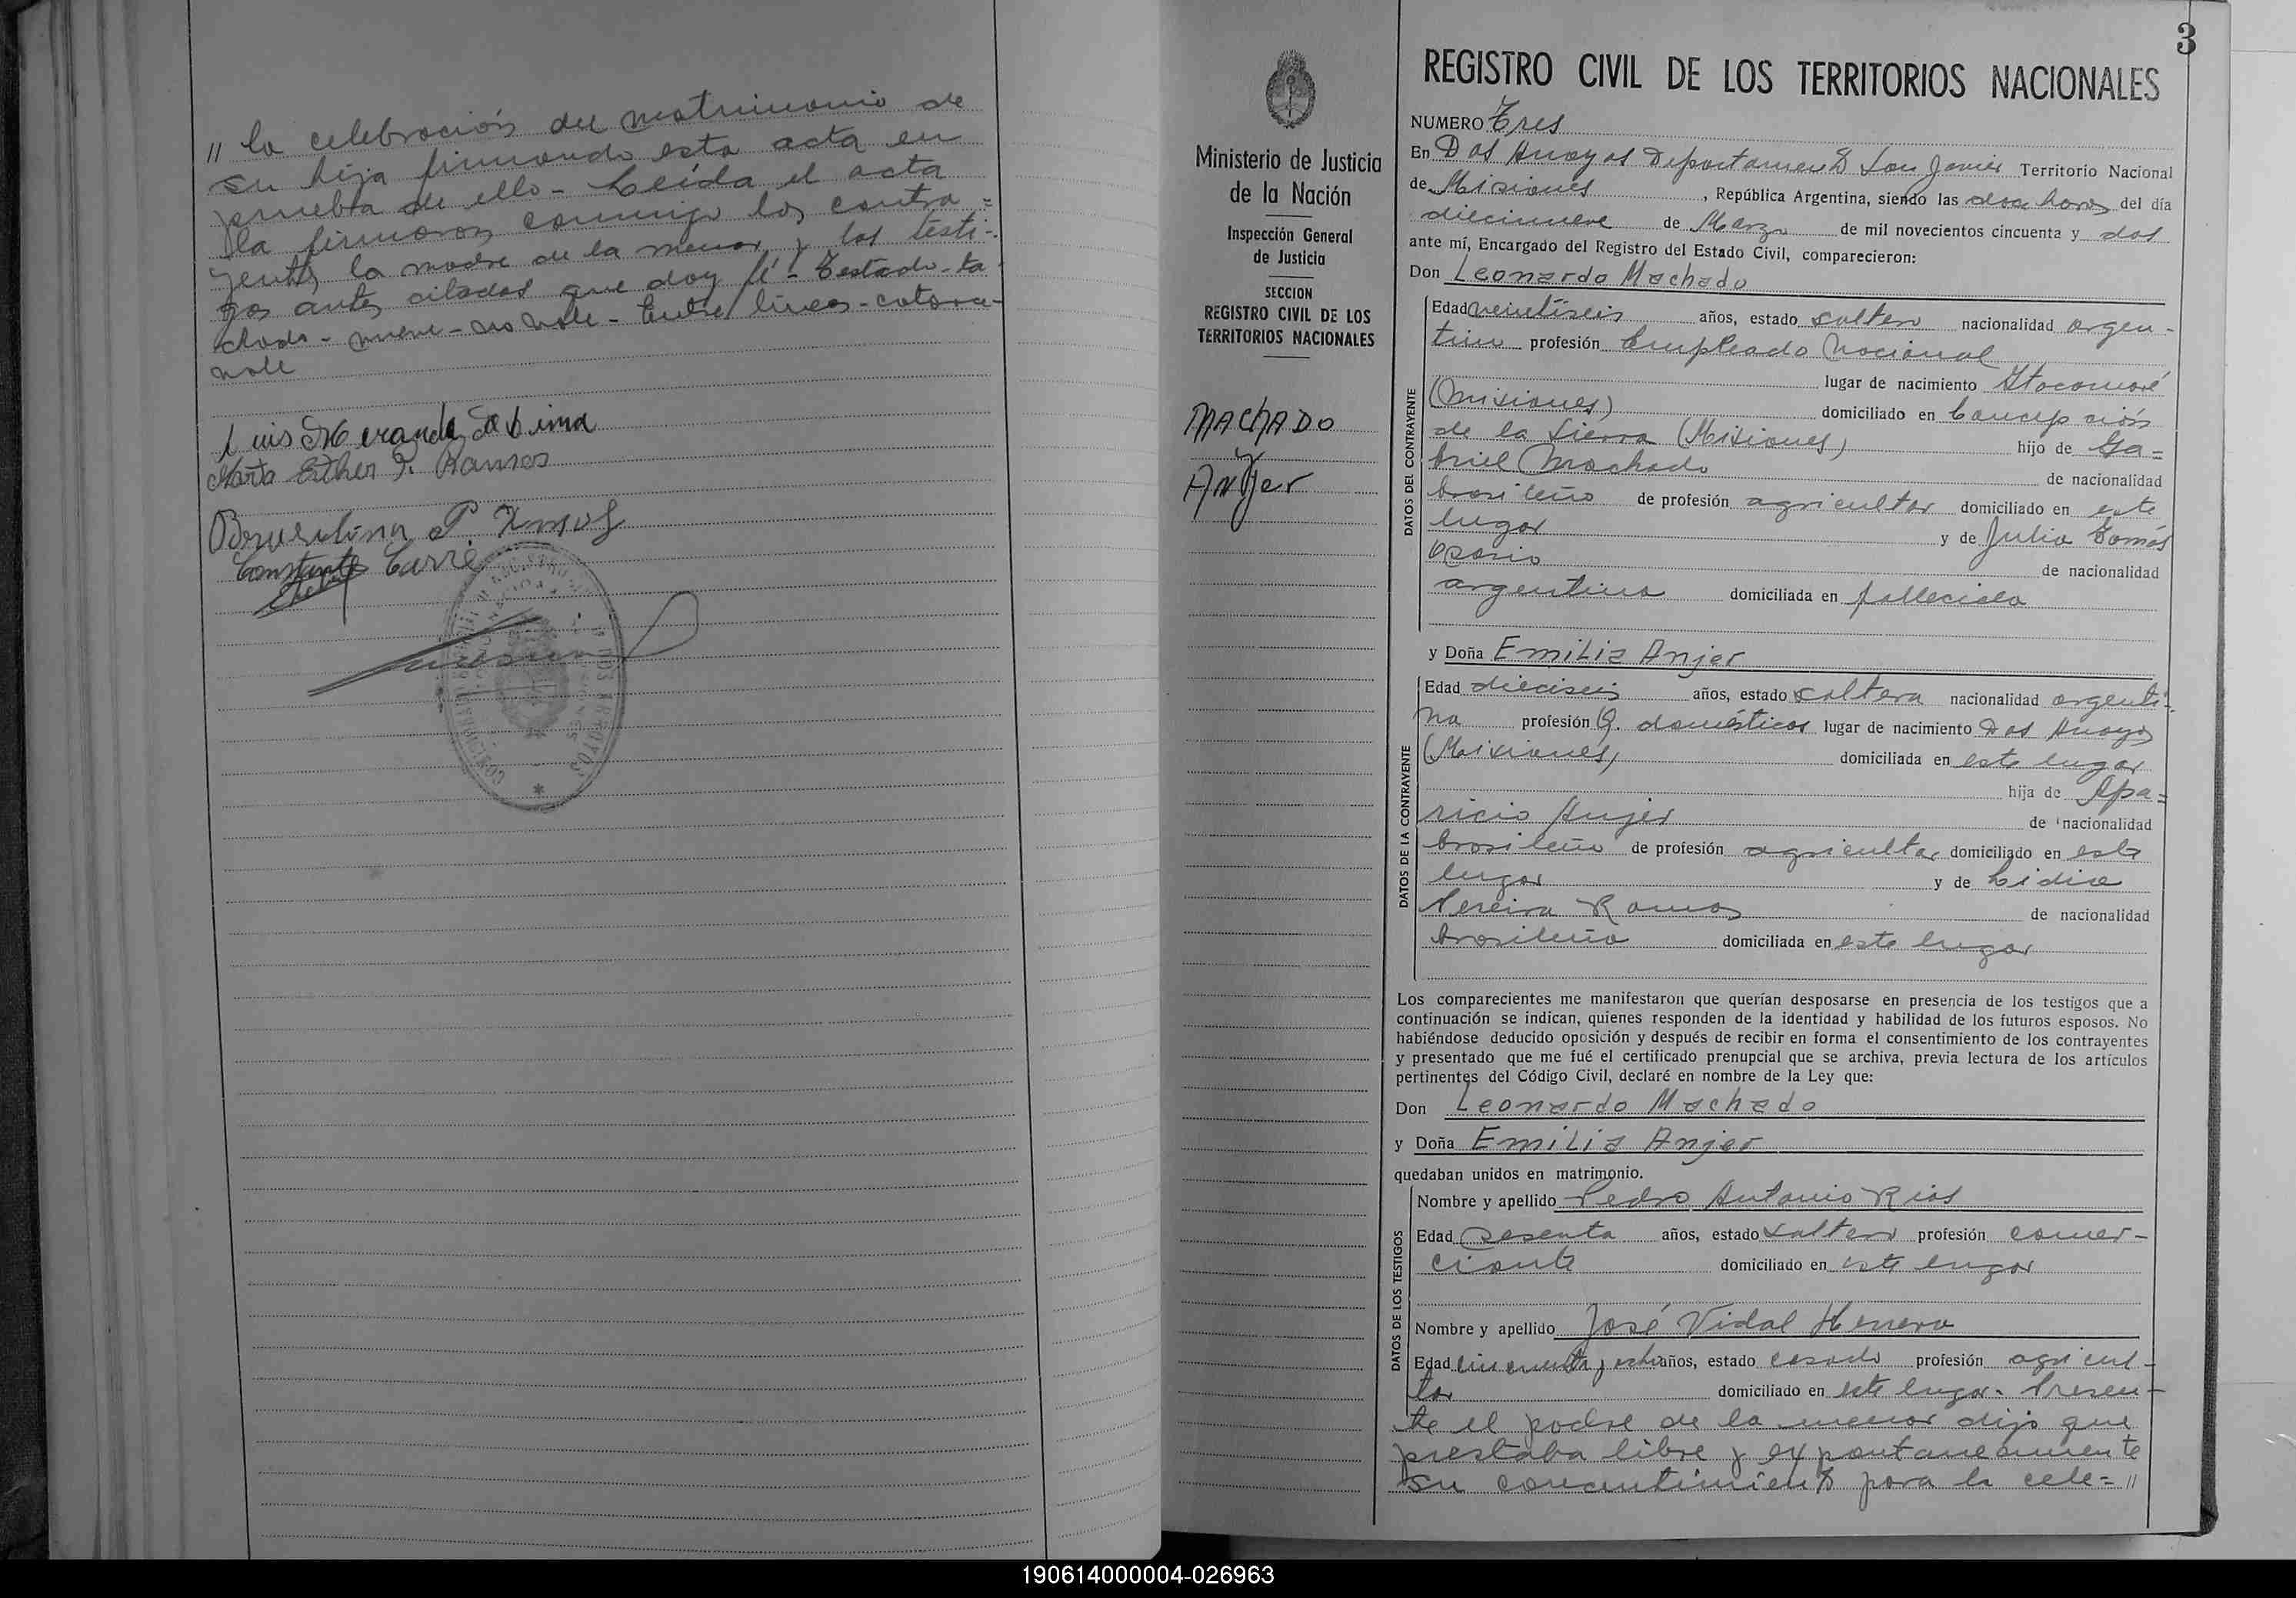 " la celebración del matrimonio de
su hija firmando esta acta en
prueba de ello - Leída el acta
la firmaron conmigo los contra=
yentes la madre de la menor y los testi-
gos antes citados que doy fé - Testado - ta
chado - nueve - no vale - Entre líneas - catorce -
vale
Luis
Marta Esther P. Ramos
P. Ramos
Constante Carré
3
REGISTRO CIVIL DE LOS TERRITORIOS NACIONALES
Ministerio de Justicia
de la Nación
Inspección General
de Justicia
SECCION
REGISTRO CIVIL DE LOS
TERRITORIOS NACIONALES
MACHADO
Y
ANJer
NUMERO Tres
En Dos Arroyos Departamento San Javier Territorio Nacional
de Misiones, República Argentina, siendo las doce horas del día
diecinueve de Marzo de mil novecientos cincuenta y dos
ante mí, Encargado del Registro del Estado Civil, comparecieron:
Don Leonardo Machado
DATOS DEL CONTRAYENTE
Edad veintiseis años, estado soltero nacionalidad argen-
tino profesión Empleado Nacional
lugar de nacimiento Itacaruaré
(Misiones) domiciliado en Concepción
de la Sierra (Misiones) hijo de Ga=
briel Machado de nacionalidad
brasileño de profesión agricultor domiciliado en este
lugar y de Julia Tomás
Osorio de nacionalidad
argentina domiciliada en fallecida
y Doña Emilia Anjer
DATOS DE LA CONTRAYENTE
Edad dieciseis años, estado soltera nacionalidad argenti-
na profesión Q. domésticos lugar de nacimiento Dos Arroyos
(Misiones) domiciliada en este lugar
hija de Apa=
ricio Anjer de nacionalidad
brasileño de profesión agricultor domiciliado en este
lugar y de Lidia
Pereira Ramos de nacionalidad
brasileña domiciliada en este lugar
Los comparecientes me manifestaron que querían desposarse en presencia de los testigos que a
continuación se indican, quienes responden de la identidad y habilidad de los futuros esposos. No
habiéndose deducido oposición y después de recibir en forma el consentimiento de los contrayentes
y presentado que me fué el certificado prenupcial que se archiva, previa lectura de los artículos
pertinentes del Código Civil, declaré en nombre de la Ley que:
Don Leonardo Machado
y Doña Emilia Anjer
quedaban unidos en matrimonio.
DATOS DE LOS TESTIGOS
Nombre y apellido Pedro Antonio Rios
Edad sesenta años, estado soltero profesión comer-
ciante domiciliado en este lugar
Nombre y apellido José Vidal Herrera
Edad cincuenta y ocho años, estado casado profesión agricul-
tor domiciliado en este lugar - Presen-
te el padre de la menor dijo que
prestaba libre y expontaneamente
su consentimiento para la cele= "
190614000004-026963